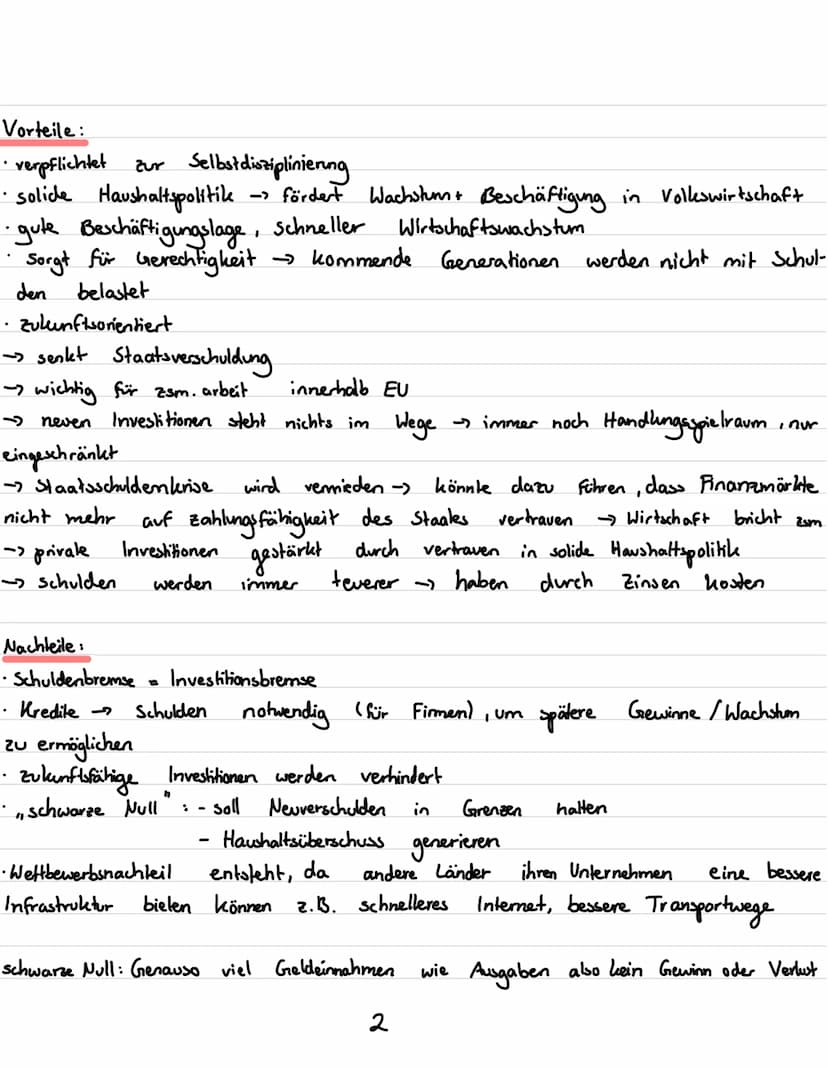 Vorteile:
· verpflichtet zur Selbstdisziplinierung
· solide Haushaltspolitik → fördert Wachstum + Beschäftigung in Volkswirtschaft
· gute Beschäftigungslage, schneller Wirtschaftswachstum
· sorgt für Gerechtigkeit → kommende Generationen werden nicht mit Schul-
den belastet
· zukunftsorientiert
→ senkt Staatsverschuldung
→ wichtig für zsm.arbeit innerhalb EU
→ neuen Investitionen steht nichts im Wege → immer noch Handlungsspielraum, nur
eingeschränkt
→ Staatsschuldenkrise wird vermieden → könnte dazu führen, dass Finanzmärkte
nicht mehr auf zahlungsfähigkeit des Staates vertrauen → Wirtschaft bricht zsm
→ private Investitionen gestärkt durch vertrauen in solide Haushaltspolitik
→ schulden werden immer teuerer → haben durch Zinsen kosten
Nachteile:
· Schuldenbremse = Investitionsbremse
· Kredite → Schulden notwendig (für Firmen), um spätere Gewinne / Wachstum
zu ermöglichen
· zukunftsfähige Investitionen werden verhindert
· „schwarze Null": - soll Neuverschulden in Grenzen halten
- Haushaltsüberschuss generieren
· Wettbewerbsnachteil entsteht, da andere Länder ihren Unternehmen eine bessere
Infrastruktur bieten können z.B. schnelleres Internet, bessere Transportwege
schwarze Null: Genauso viel Geldeinnahmen wie Ausgaben also kein Gewinn oder Verlust
2